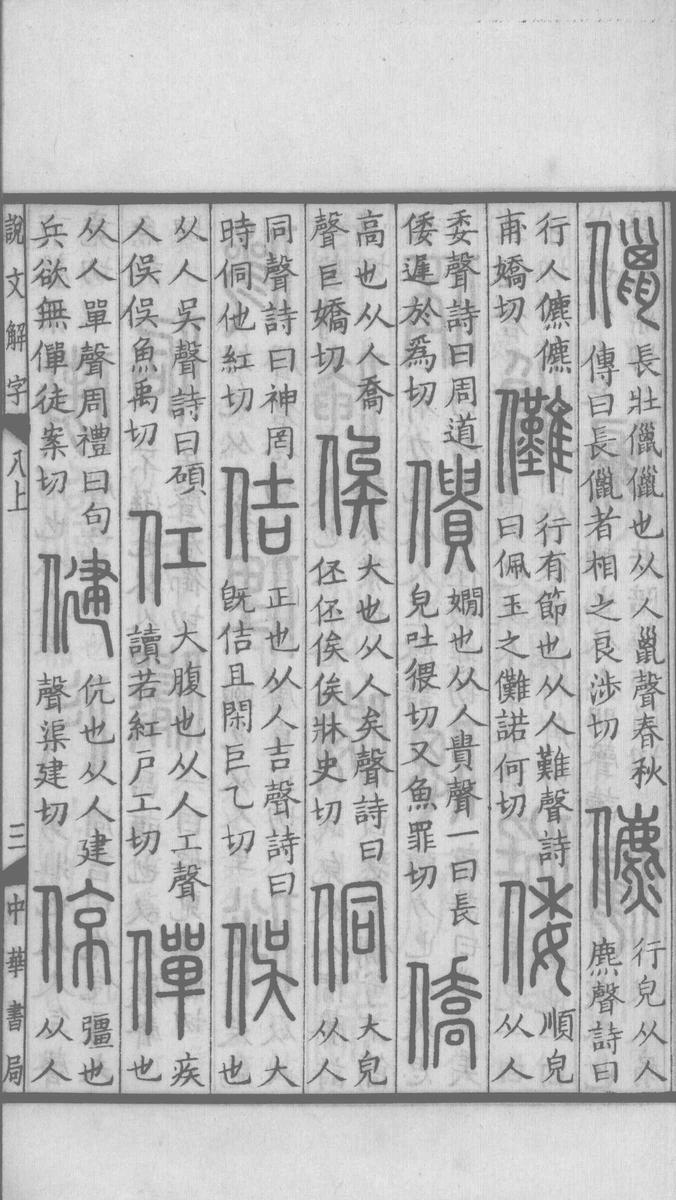 儠長壯儠儠也从人巤聲春秋傳曰長儠者相之良涉切儦行皃从人麃聲詩曰
行人儦儦甫嬌切儺行有節也从人難聲詩曰佩玉之儺諾何切倭順皃从人
委聲詩曰周道倭遲於爲切僓嫺也从人貴聲一曰長皃吐猥切又魚罪切僑
高也从人喬聲巨嬌切俟大也从人矣聲詩曰伾伾俟俟牀史切侗大皃从人
同聲詩曰神罔時侗他紅切佶正也从人吉聲詩曰既佶且閑巨乙切俁大也
从人吳聲詩曰碩人俁俁魚禹切仜大腹也从人工聲讀若紅戶工切僤疾也
从人單聲周禮曰句兵欲無僤徒案切健伉也从人建聲渠建切倞彊也从人
說文解字 八上 三 中華書局